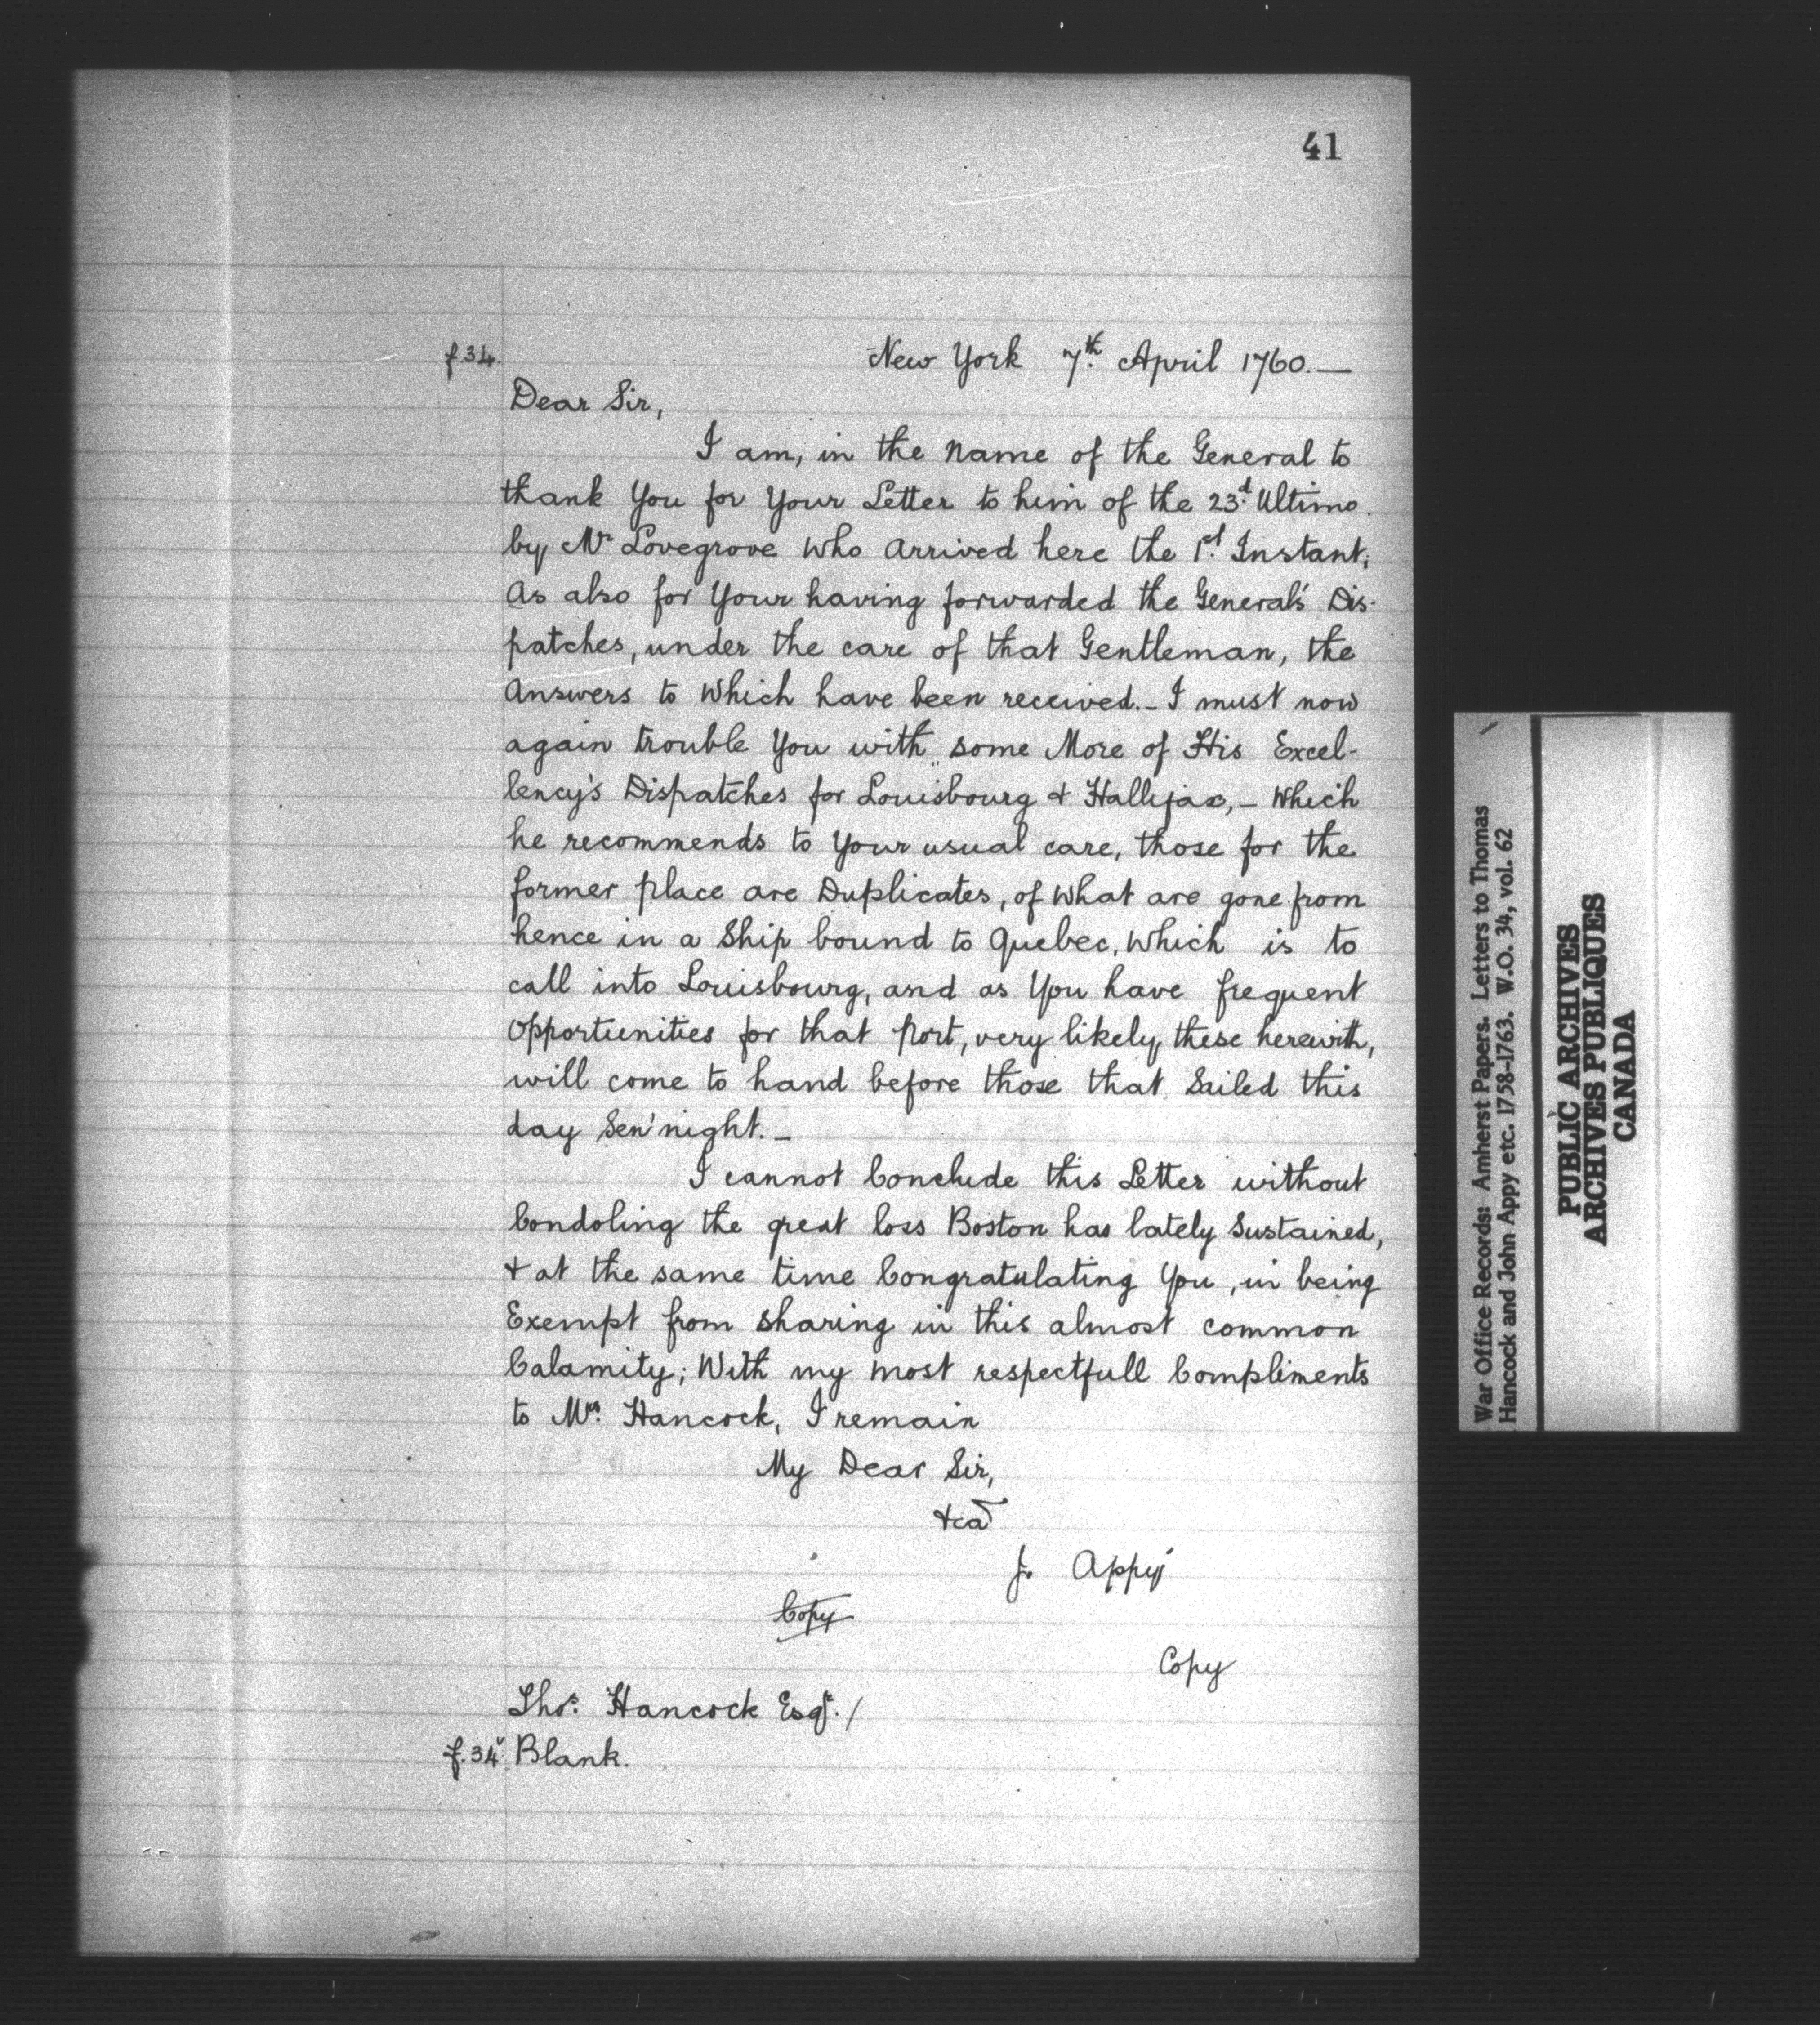 41
f.34.
New York 7th. April 1760.—
Dear Sir,
I am, in the Name of the General to
thank You for Your Letter to him of the 23d. Ultimo.
by Mr Lovegrove Who Arrived here the 1st. Instant;
As also for Your having forwarded the General's Dis-
patches, under the care of that Gentleman, the
Answers to Which have been received.- I must now
again trouble You with some More of His Excel-
lency's Dispatches for Louisbourg & Hallifax,- Which
he recommends to Your usual care, those for the
former place are Duplicates, of What are gone from
hence in a Ship bound to Quebec, Which is to
call into Louisbourg, and as You have frequent
Opportunities for that Port, very likely, these herewith,
will come to hand before those that Sailed this
day Sen'night.-
I cannot Conclude this Letter without
Condoling the great loss Boston has lately Sustained,
& at the same time Congratulating You, in being
Exempt from sharing in this almost common
Calamity; With my most respectfull Compliments
to Mrs. Hancock, I remain
My Dear Sir,
&ca
J. Appy
Copy
Copy
Thos. Hancock Esqr. /
f.34v. Blank.
War Office Records: Amherst Papers. Letters to Thomas
Hancock and John Appy etc. 1758-1763. W.O. 34, vol. 62
PUBLIC ARCHIVES
ARCHIVES PUBLIQUES
CANADA